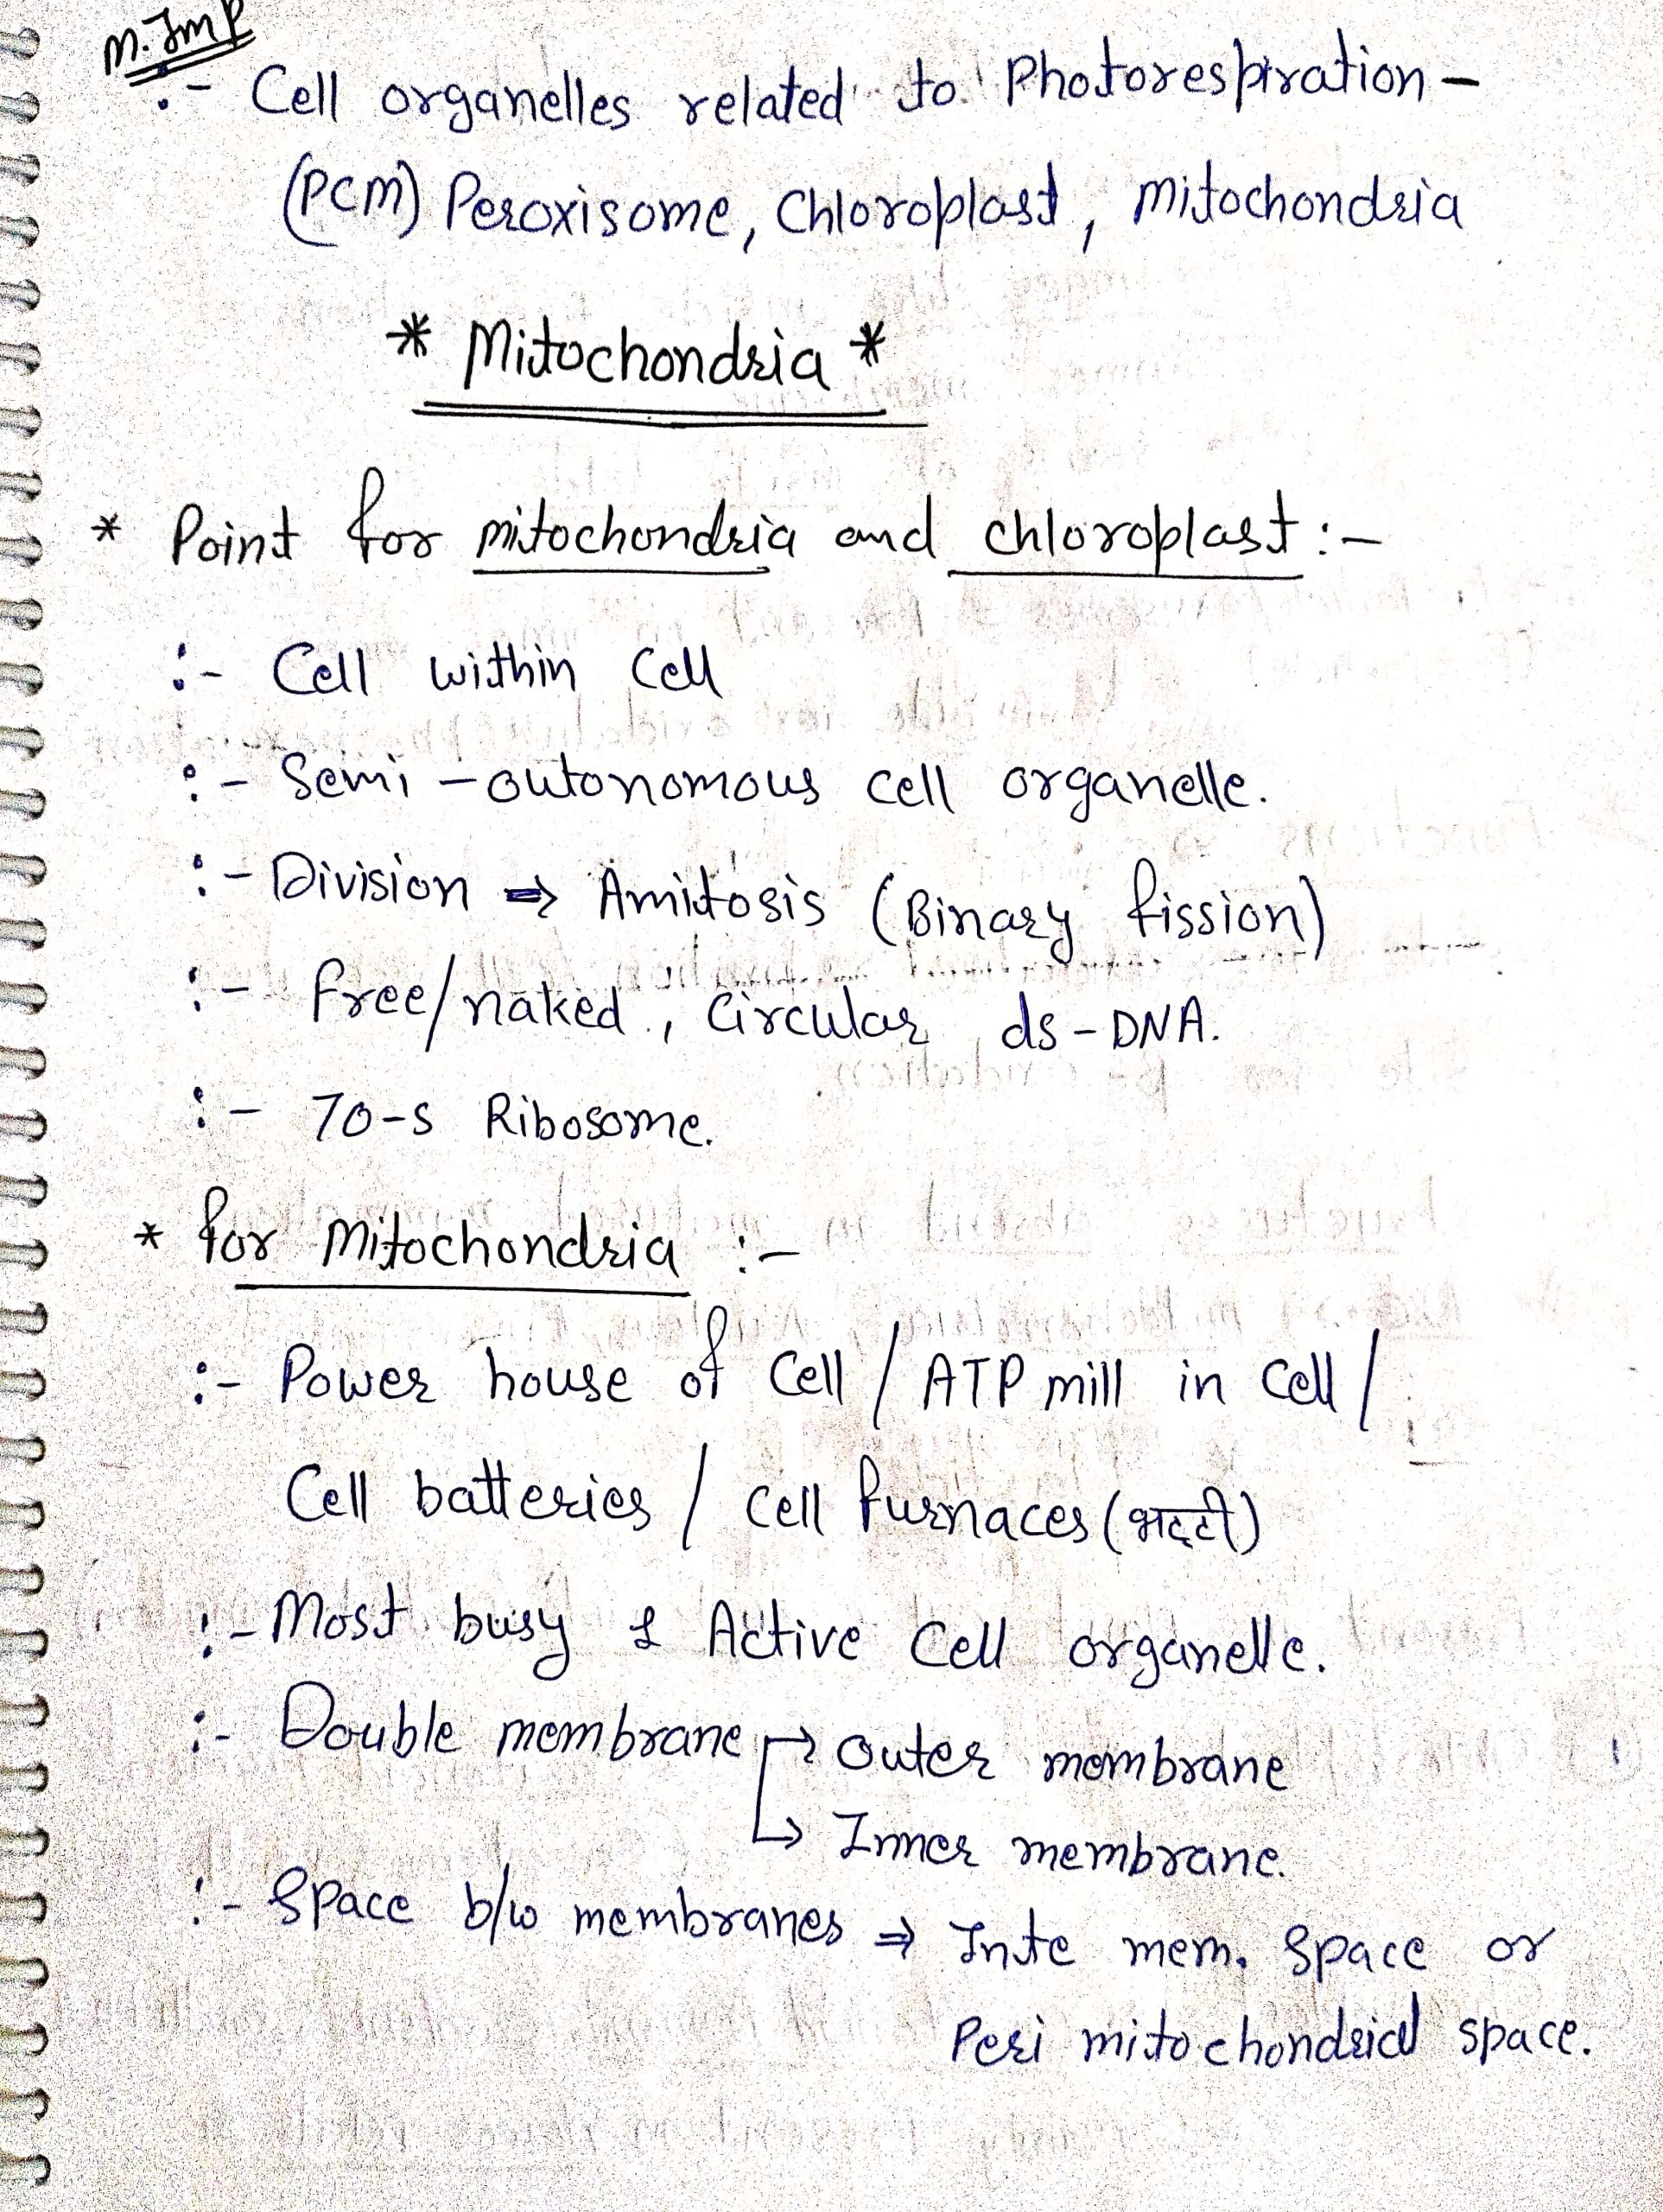 M. Imp
:- Cell organelles related to Photorespiration -
(PCM) Peroxisome, Chloroplast, Mitochondria
* Mitochondria *
* Point for mitochondria and chloroplast :-
:- Cell within Cell
:- Semi - autonomous cell organelle.
:- Division ⇒ Amitosis (Binary fission)
:- free/naked, Circular ds-DNA.
:- 70-s Ribosome.
* for Mitochondria :-
:- Power house of Cell / ATP mill in Cell /
Cell batteries / Cell furnaces (भट्टी)
:- Most busy & Active Cell organelle.
:- Double membrane → Outer membrane
↳ Inner membrane.
:- Space b/w membranes ⇒ Inte mem. Space or
Peri mitochondrial space.